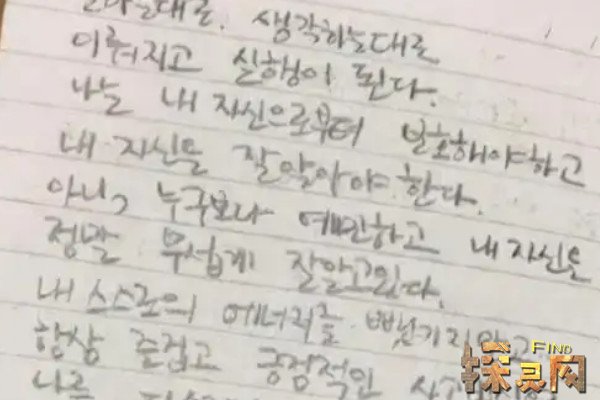 생각하는대로
이뤄지고 실행이 된다.
나는 내 자신으로부터 보호해야하고
내 자신을 잘알아야 한다.
아니, 누구보다 예민하고 내 자신을
정말 무섭게 잘알고있다.
내 스스로의 에너지를 뺏기지않고
항상 즐겁고 긍정적인
FIND
探灵网